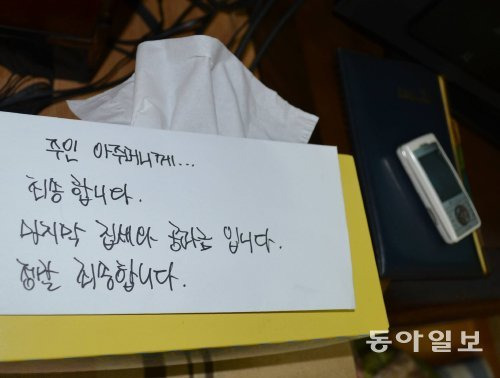 주인 아주머니께...
죄송합니다.
마지막 집세와 공과금 입니다.
정말 죄송합니다.
동아일보